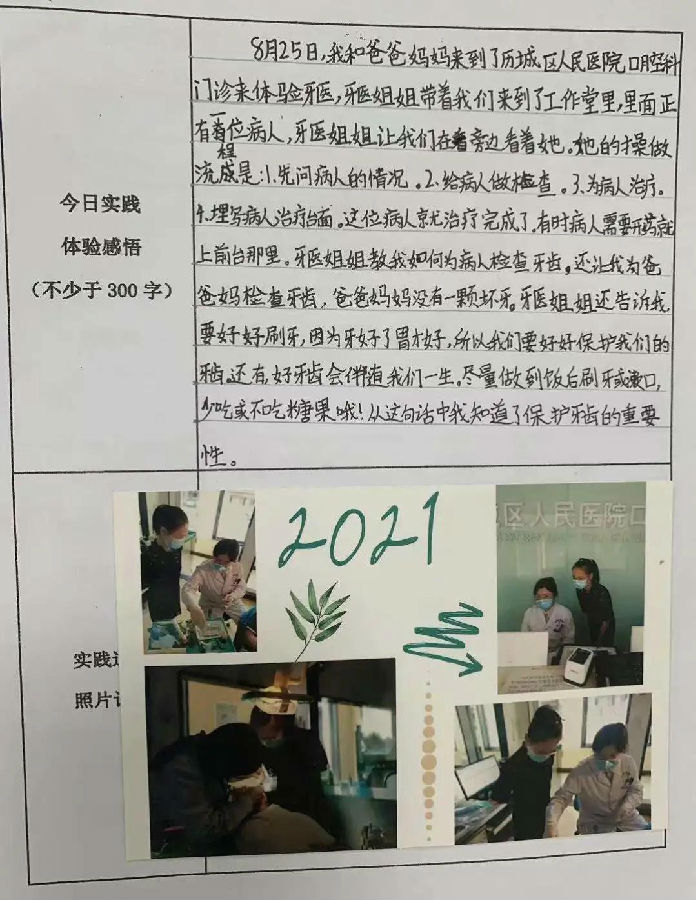 今日实践
体验感悟
（不少于 300 字）
8月25日,我和爸爸妈妈来到了历城区人民医院口腔科
门诊来体验牙医,牙医姐姐带着我们来到了工作堂里,里面正
有一位病人,牙医姐姐让我们在旁边看着她。她的操做
流程是:1.先问病人的情况。2.给病人做检查。3.为病人治疗。
4.埋写病人治疗台面。这位病人就治疗完成了,有时病人需要开药就
上前台那里。牙医姐姐教我如何为病人检查牙齿。还让我为爸
爸妈检查牙齿,爸爸妈妈没有一颗坏牙。牙医姐姐还告诉我
要好好刷牙,因为牙好了胃才好,所以我们要好好保护我们的
牙齿.还有,好牙齿会伴随我们一生。尽量做到饭后刷牙或漱口,
少吃或不吃糖果哦!从这句话中我知道了保护牙齿的重要
性。
实践
照片
2021
区人民医院口